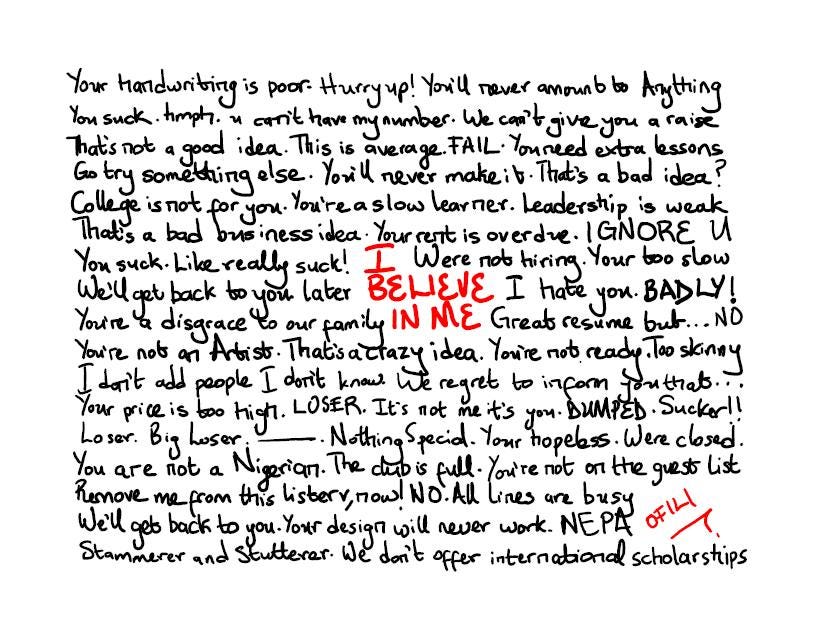 Your Handwriting is poor. Hurry up! You'll never amount to Anything
You suck. hmph. u can't have my number. We can't give you a raise
That's not a good idea. This is average. FAIL. You need extra lessons
Go try something else. You'll never make it. That's a bad idea?
College is not for you. You're a slow learner. Leadership is weak
That's a bad business idea. Your rent is overdue. IGNORE U
You suck. Like really suck! I Were not hiring. Your too slow
We'll get back to you later BELIEVE I hate you. BADLY!
You're a disgrace to our family IN ME Great resume but... NO
You're not an Artist. That's a crazy idea. You're not ready. Too skinny
I don't add people I don't know. We regret to inform you that...
Your price is too high. LOSER. It's not me it's you. DUMPED. Sucker!!
Loser. Big Loser. ———. Nothing Special. Your hopeless. Were closed.
You are not a Nigerian. The club is full. You're not on the guest list
Remove me from this listerv, now! NO. All lines are busy
We'll get back to you. Your design will never work. NEPA OFILI
Stammerer and Stutterer. We don't offer international scholarships